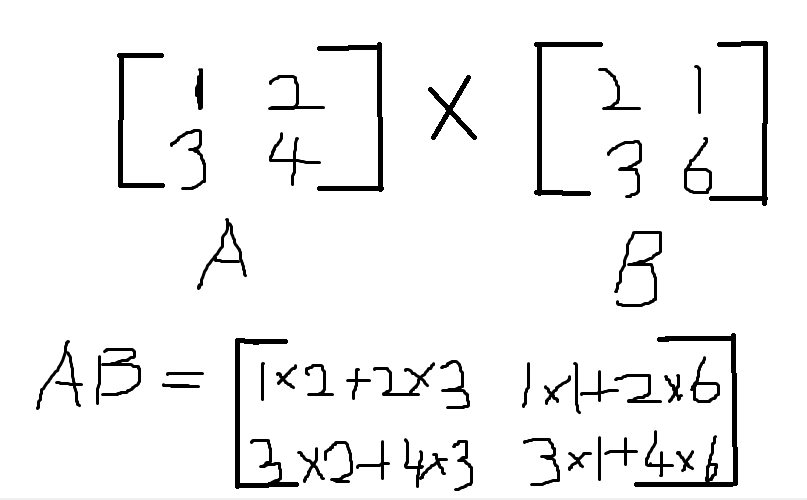 1 2 × 2 1
3 4 3 6
A B
AB = 1×2+2×3 1×1+2×6
3×2+4×3 3×1+4×6